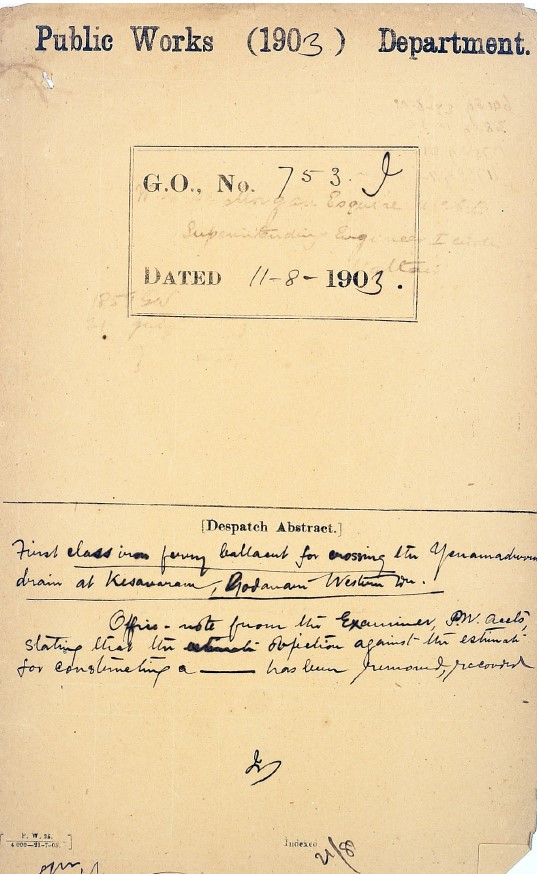 Public Works (1903) Department.
G.O., No. 753. I
Esquire
Superintending Engineer I
DATED 11-8-1903.
[Despatch Abstract.]
First class iron ferry ballacut for crossing the Yenamadurru
drain at Kesavaram, Godavari Western Dn.
Office-note from the Examiner, P.W. Accts,
stating that the objection against the estimate
for constructing a —— has been removed, recorded
P. W. 25.
Indexed
21/8